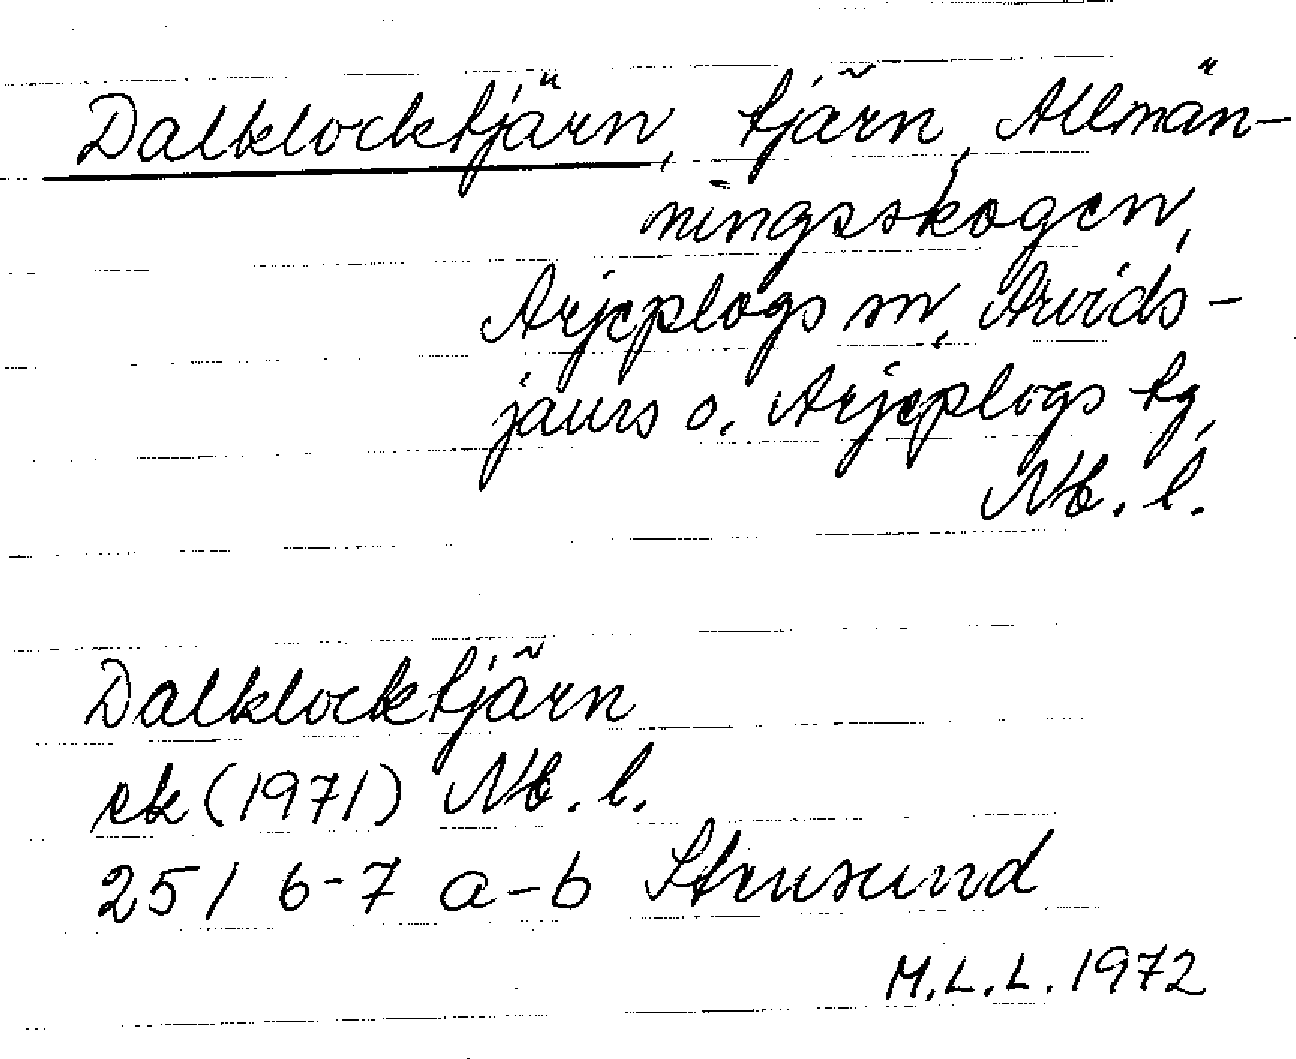 Dalklocktjärn, tjärn, Allmän-
ningsskogen,
Arjeplogs sn, Arvids-
jaurs o. Arjeplogs tg,
Nb. l.
Dalklocktjärn
ek (1971) Nb. l.
25 I 6-7 a-b Stensund
M.L.L. 1972